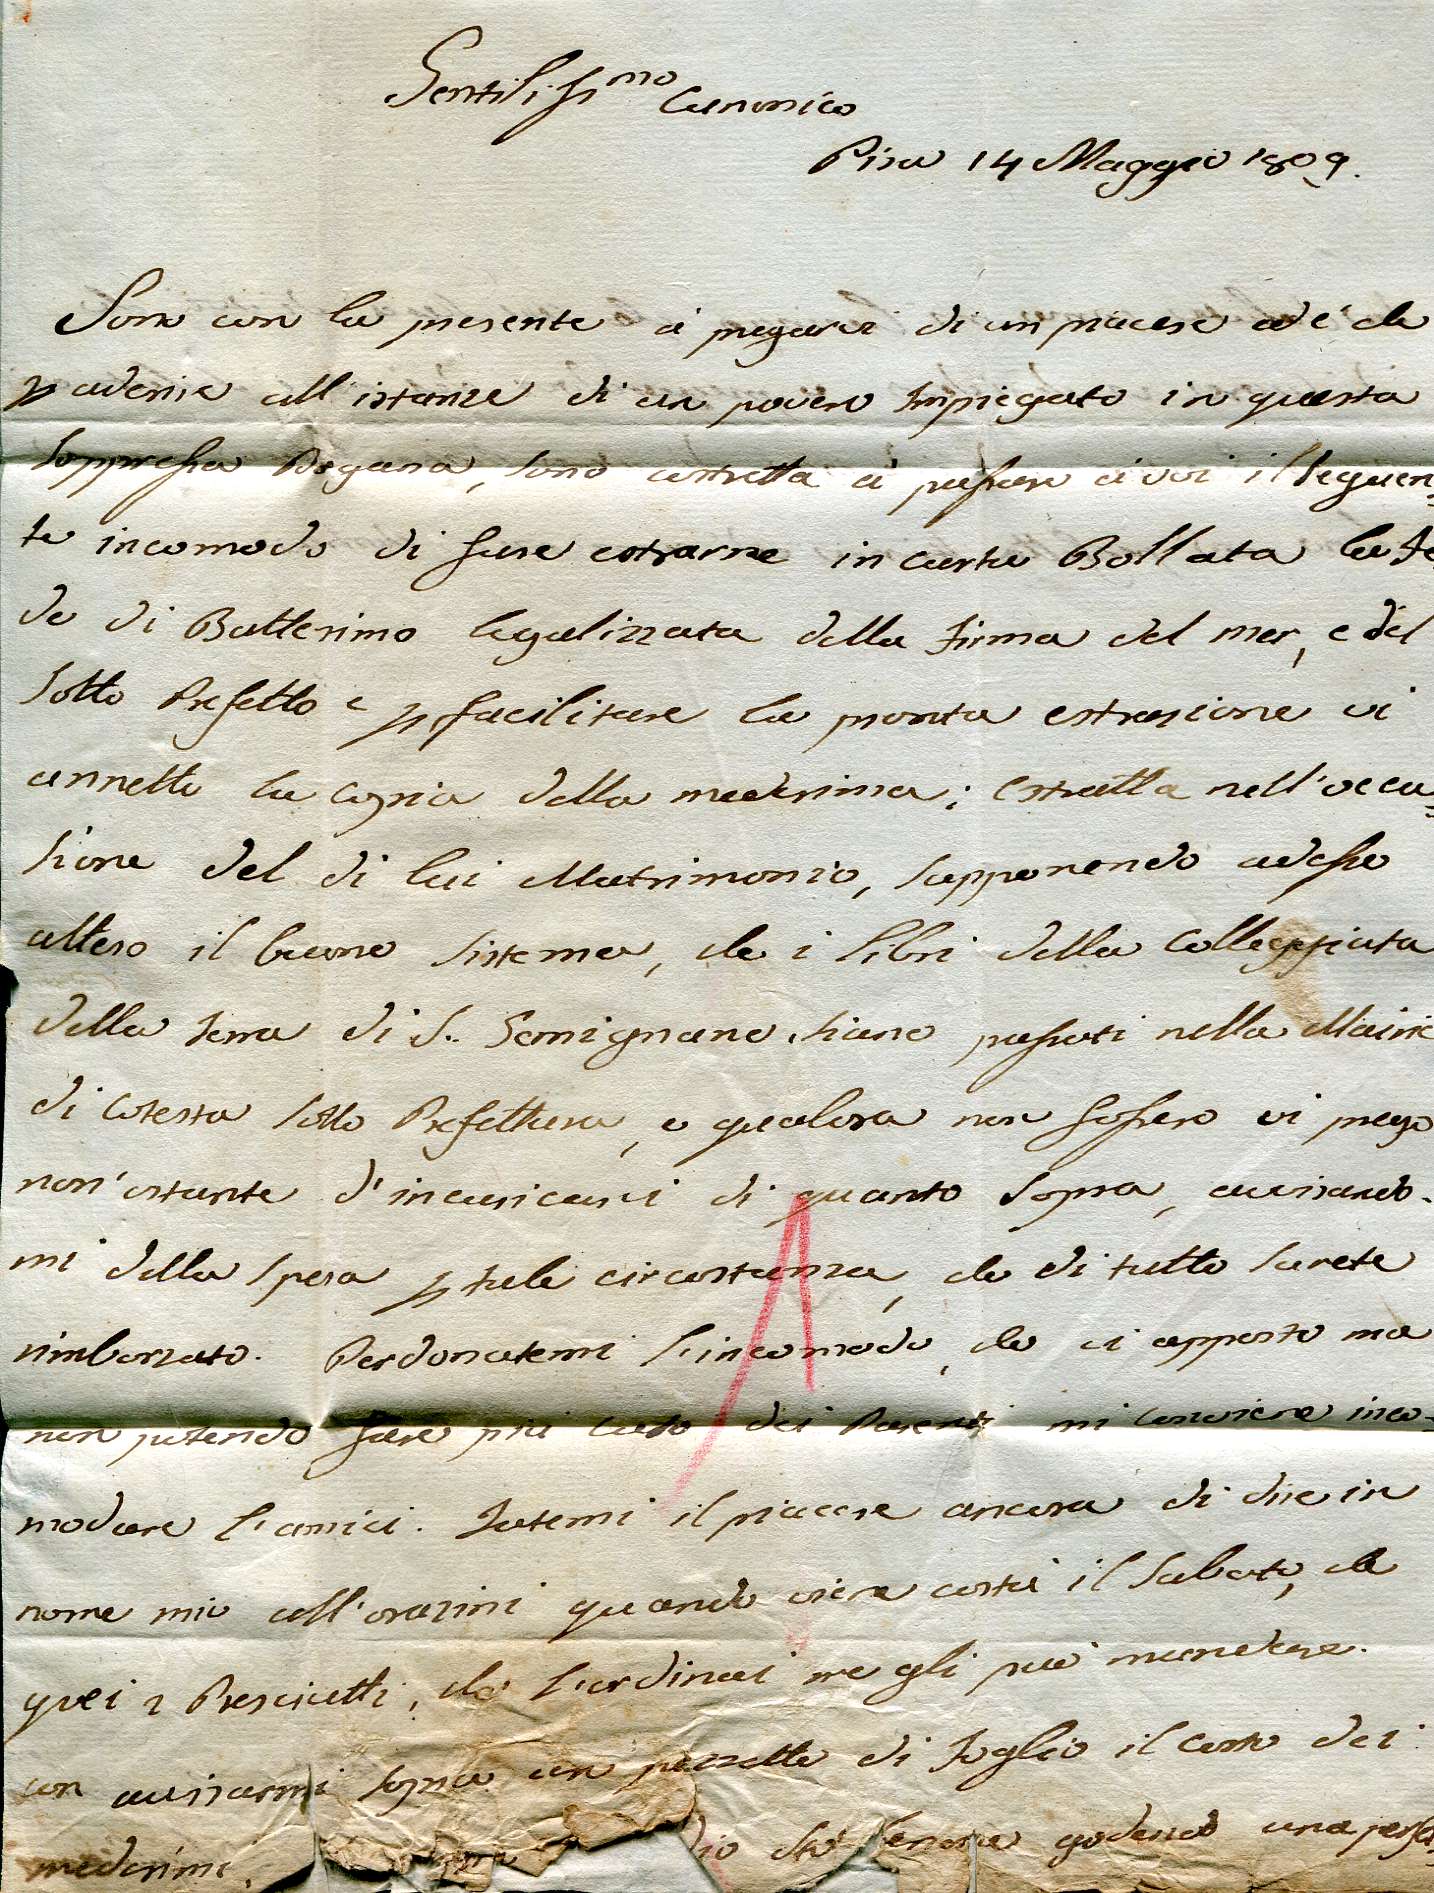 Gentilissmo Canonico
Pisa 14 Maggio 1809.
Sono con la presente à pregarvi di un piacere ed è che
p aderire all'istanze di un povero Impiegato in questa
soppressa Dogana, sono costretta à passare à voi il seguen-
te incomodo di fare estrarre in carta Bollata la fe
de di Battesimo legalizzata della firma del mer, e del
Sotto Prefetto e p facilitare la pronta estrazione vi
annetto la copia della medesima; estratta nell'occa-
sione del di lui Matrimonio, supponendo adesso
atteso il buono sistema, che i libri della Colleggiata
della Terra di S. Gemignano siano passati nella Mairie
di cotesta Sotto Prefettura, e qualora non fossero vi prego
non'ostante d'incaricarvi di quanto sopra, avvisando-
mi della spesa p tale circostanza, che di tutto sarete
rimborzato. Perdonatemi l'incomodo, che vi apporto ma
non potendo fare più caso dei Parenti mi conviene inco-
modare l'amici. Fatemi il piacere ancora di dire in
nome mio all'orazini quando viene costà il Sabato, che
quei 2 Presciutti, che l'ordinai me gli può mandare.
con avvisarmi sopra un pezzetto di foglio il costo dei
medesimi. Io stò benone godendo una perfet-